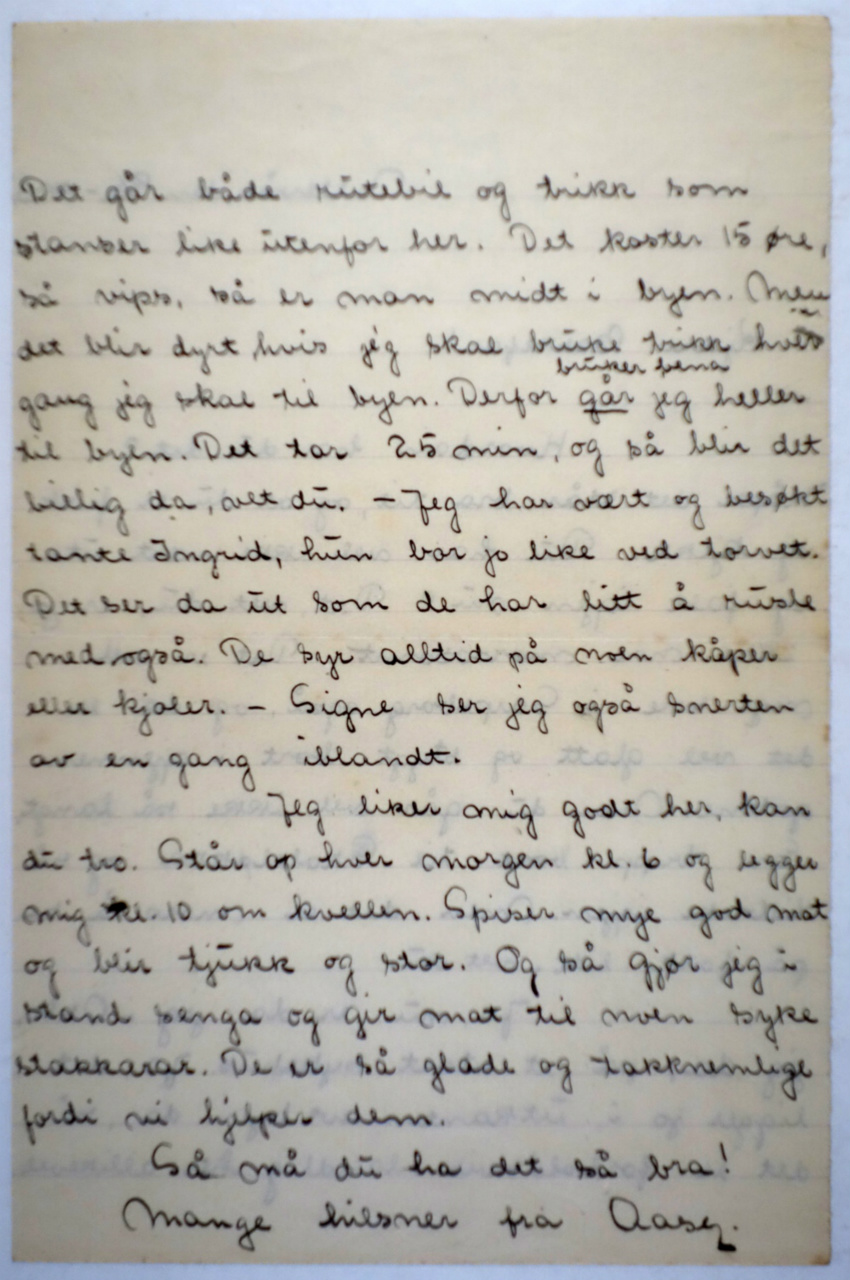 Det går både rutebil og trikk som
stanser like utenfor her. Det koster 15 øre,
så vips, så er man midt i byen. Men
det blir dyrt, hvis jeg skal bruke trikk hver
bruker bena
gang jeg skal til byen. Derfor går jeg heller
til byen. Det tar 25 min, og så blir det
billig da, vet du. – Jeg har vært og besøkt
tante Ingrid, hun bor jo like ved torvet.
Det ser da ut som de har litt å rusle
med også. De syr alltid på noen kåper
eller kjoler. – Signe ser jeg også snerten
av en gang iblandt.
Jeg liker mig godt her, kan
du tro. Står op hver morgen kl. 6 og legger
mig kl. 10 om kvellen. Spiser mye god mat
og blir tjukk og stor. Og så gjør jeg i
stand senga og gir mat til noen syke
stakkarar. De er så glade og takknemlige
fordi vi hjelper dem.
Så må du ha det så bra!
Mange hilsner fra Aase.